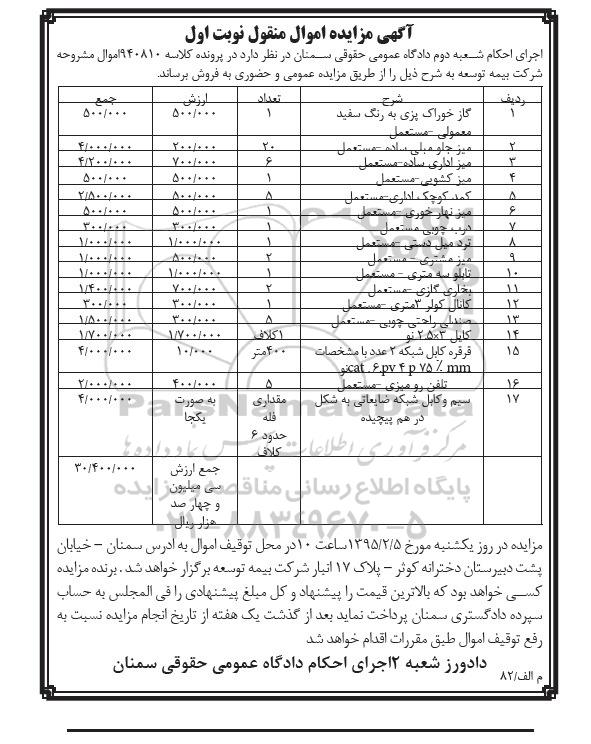 آگهی مزایده اموال منقول نوبت اول
اجرای احکام شـعبه دوم دادگاه عمومی حقوقی سـمنان در نظر دارد در پرونده کلاسه ۹۴۰۸۱۰اموال مشروحه
شرکت بیمه توسعه به شرح ذیل را از طریق مزایده عمومی و حضوری به فروش برساند.
ردیف شرح تعداد ارزش جمع
۱ گاز خوراک پزی به رنگ سفید ۱ ۵۰۰/۰۰۰ ۵۰۰/۰۰۰
معمولی -مستعمل
۲ میز جلو مبلی ساده -مستعمل ۲۰ ۲۰۰/۰۰۰ ۴/۰۰۰/۰۰۰
۳ میز اداری ساده-مستعمل ۶ ۷۰۰/۰۰۰ ۴/۲۰۰/۰۰۰
۴ میز کشویی-مستعمل ۱ ۵۰۰/۰۰۰ ۵۰۰/۰۰۰
۵ کمد کوچک اداری-مستعمل ۵ ۵۰۰/۰۰۰ ۲/۵۰۰/۰۰۰
۶ میز نهار خوری -مستعمل ۱ ۵۰۰/۰۰۰ ۵۰۰/۰۰۰
۷ درب چوبی مستعمل ۱ ۳۰۰/۰۰۰ ۳۰۰/۰۰۰
۸ ترد میل دستی -مستعمل ۱ ۱/۰۰۰/۰۰۰ ۱/۰۰۰/۰۰۰
۹ میز مشتری - مستعمل ۲ ۵۰۰/۰۰۰ ۱/۰۰۰/۰۰۰
۱۰ تابلو سه متری - مستعمل ۱ ۱/۰۰۰/۰۰۰ ۱/۰۰۰/۰۰۰
۱۱ بخاری گازی - مستعمل ۲ ۷۰۰/۰۰۰ ۱/۴۰۰/۰۰۰
۱۲ کانال کولر ۳متری -مستعمل ۱ ۳۰۰/۰۰۰ ۳۰۰/۰۰۰
۱۳ صندلی راحتی چوبی -مستعمل ۵ ۳۰۰/۰۰۰ ۱/۵۰۰/۰۰۰
۱۴ کابل ۳×۲.۵ نو ۱کلاف ۱/۷۰۰/۰۰۰ ۱/۷۰۰/۰۰۰
۱۵ قرقره کابل شبکه ۲ عدد با مشخصات ۴۰۰متر ۱۰/۰۰۰ ۴/۰۰۰/۰۰۰
cat .۶.pv ۴ p ۷۵ ٪ mmنو
۱۶ تلفن رو میزی -مستعمل ۵ ۴۰۰/۰۰۰ ۲/۰۰۰/۰۰۰
۱۷ سیم وکابل شبکه ضایعاتی به شکل مقداری به صورت ۴/۰۰۰/۰۰۰
در هم پیچیده فله یکجا
حدود ۶
کلاف
جمع ارزش ۳۰/۴۰۰/۰۰۰
سی میلیون
و چهار صد
هزار ریال
مزایده در روز یکشنبه مورخ ۱۳۹۵/۲/۵ساعت ۱۰در محل توقیف اموال به آدرس سمنان – خیابان
پشت دبیرستان دخترانه کوثر – پلاک ۱۷ انبار شرکت بیمه توسعه برگزار خواهد شد . برنده مزایده
کسـی خواهد بود که بالاترین قیمت را پیشنهاد و کل مبلغ پیشنهادی را فی المجلس به حساب
سپرده دادگستری سمنان پرداخت نماید بعد از گذشت یک هفته از تاریخ انجام مزایده نسبت به
رفع توقیف اموال طبق مقررات اقدام خواهد شد
دادورز شعبه ۲اجرای احکام دادگاه عمومی حقوقی سمنان
م الف/۸۲
ParsNamadData
مرکز فرآوری اطلاعات پارس نماد داده ها
پایگاه اطلاع رسانی مناقصه و مزایده
۰۲۱-۸۸۳۴۹۶۷۰-۵